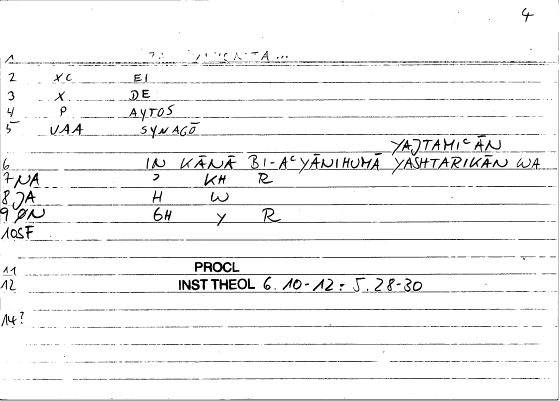 4
1
2 XC EI
3 X DE
4 P AYTOS
5 VAA SYNAGŌ
YAJTAMIᶜĀN
6 IN KĀNĀ BI-AᶜYĀNIHUMĀ YASHTARIKĀN WA
7 NA ʾ KH R
8 JA H W
9 ØN GH Y R
10 SF
11 PROCL
12 INST THEOL 6.10-12 = 5.28-30
14?